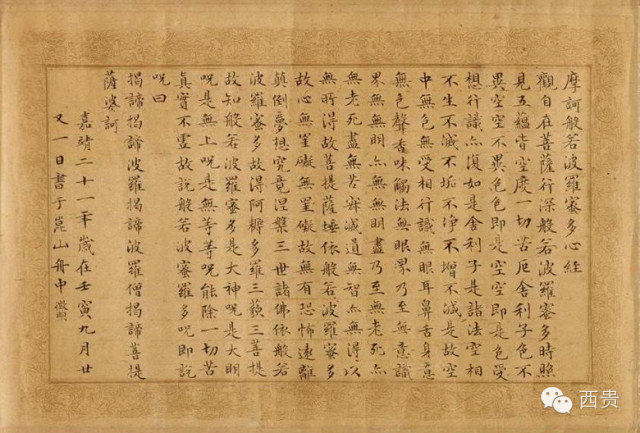 摩訶般若波羅蜜多心経
觀自在菩薩行深般若波羅蜜多時照
見五蘊皆空度一切苦厄舍利子色不
異空空不異色色即是空空即是色受
想行識亦復如是舍利子是諸法空相
不生不滅不垢不淨不增不減是故空
中無色無受相行識無眼耳鼻舌身意
無色聲香味觸法無眼界乃至無意識
界無無明亦無無明盡乃至無老死亦
無老死盡無苦寂滅道無智亦無得以
無所得故菩提薩埵依般若波羅蜜多
故心無罣礙無罣礙故無有恐怖遠離
顛倒夢想究竟涅槃三世諸佛依般若
波羅蜜多故得阿耨多羅三藐三菩提
故知般若波羅蜜多是大神呪是大明
呪是無上呪是無等等呪能除一切苦
真實不虛故說般若波蜜羅多呪即說
呪曰
揭諦揭諦波羅揭諦波羅僧揭諦菩提
薩婆訶
嘉靖二十一年歲在壬寅九月廿
又一日書于崑山舟中 徵明
西贵